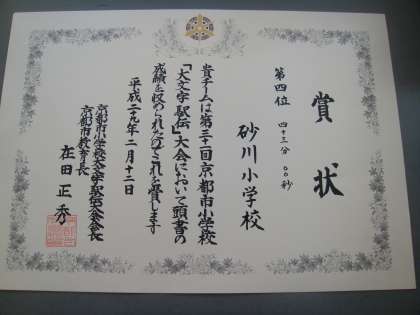 賞状
第四位 四十三分〇〇秒
砂川小学校
貴チームは第三十一回京都市小学校
「大文字駅伝」大会において頭書の
成績を収められたのでこれを賞します
平成二十九年二月十二日
京都市小学校大文字駅伝大会会長
京都市教育長
在田正秀